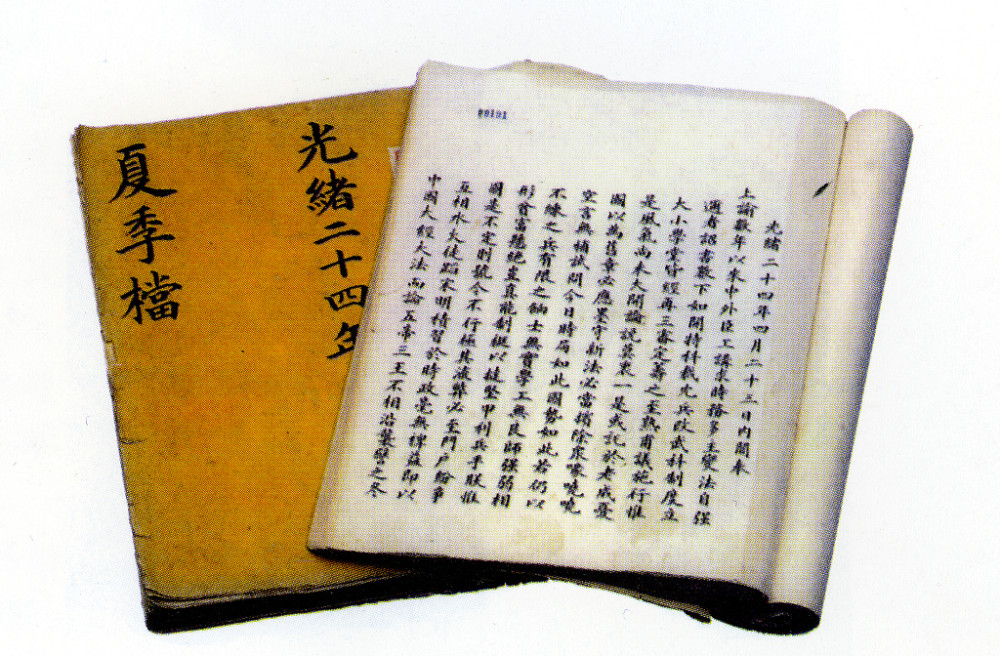 光緒二十四年
夏季檔
光緒二十四年四月二十三日內閣奉
上諭數年以來中外臣工講求時務多主變法自强
邇者詔書數下如開特科裁冗兵改武科制度立
大小學堂皆經再三審定籌之至熟甫議施行惟
是風氣尚未大開論說莫衷一是或託於老成憂
國以為舊章必應墨守新法必當擯除衆喙嘵嘵
空言無補試問今日時局如此國勢如此若仍以
不練之兵有限之餉士無實學工無良師强弱相
形貧富懸絕豈真能制梃以撻堅甲利兵乎朕惟
國是不定則號令不行極其流弊必至門戶紛爭
互相水火徒蹈宋明積習於時政毫無裨益即以
中國大經大法而論五帝三王不相沿襲譬之冬